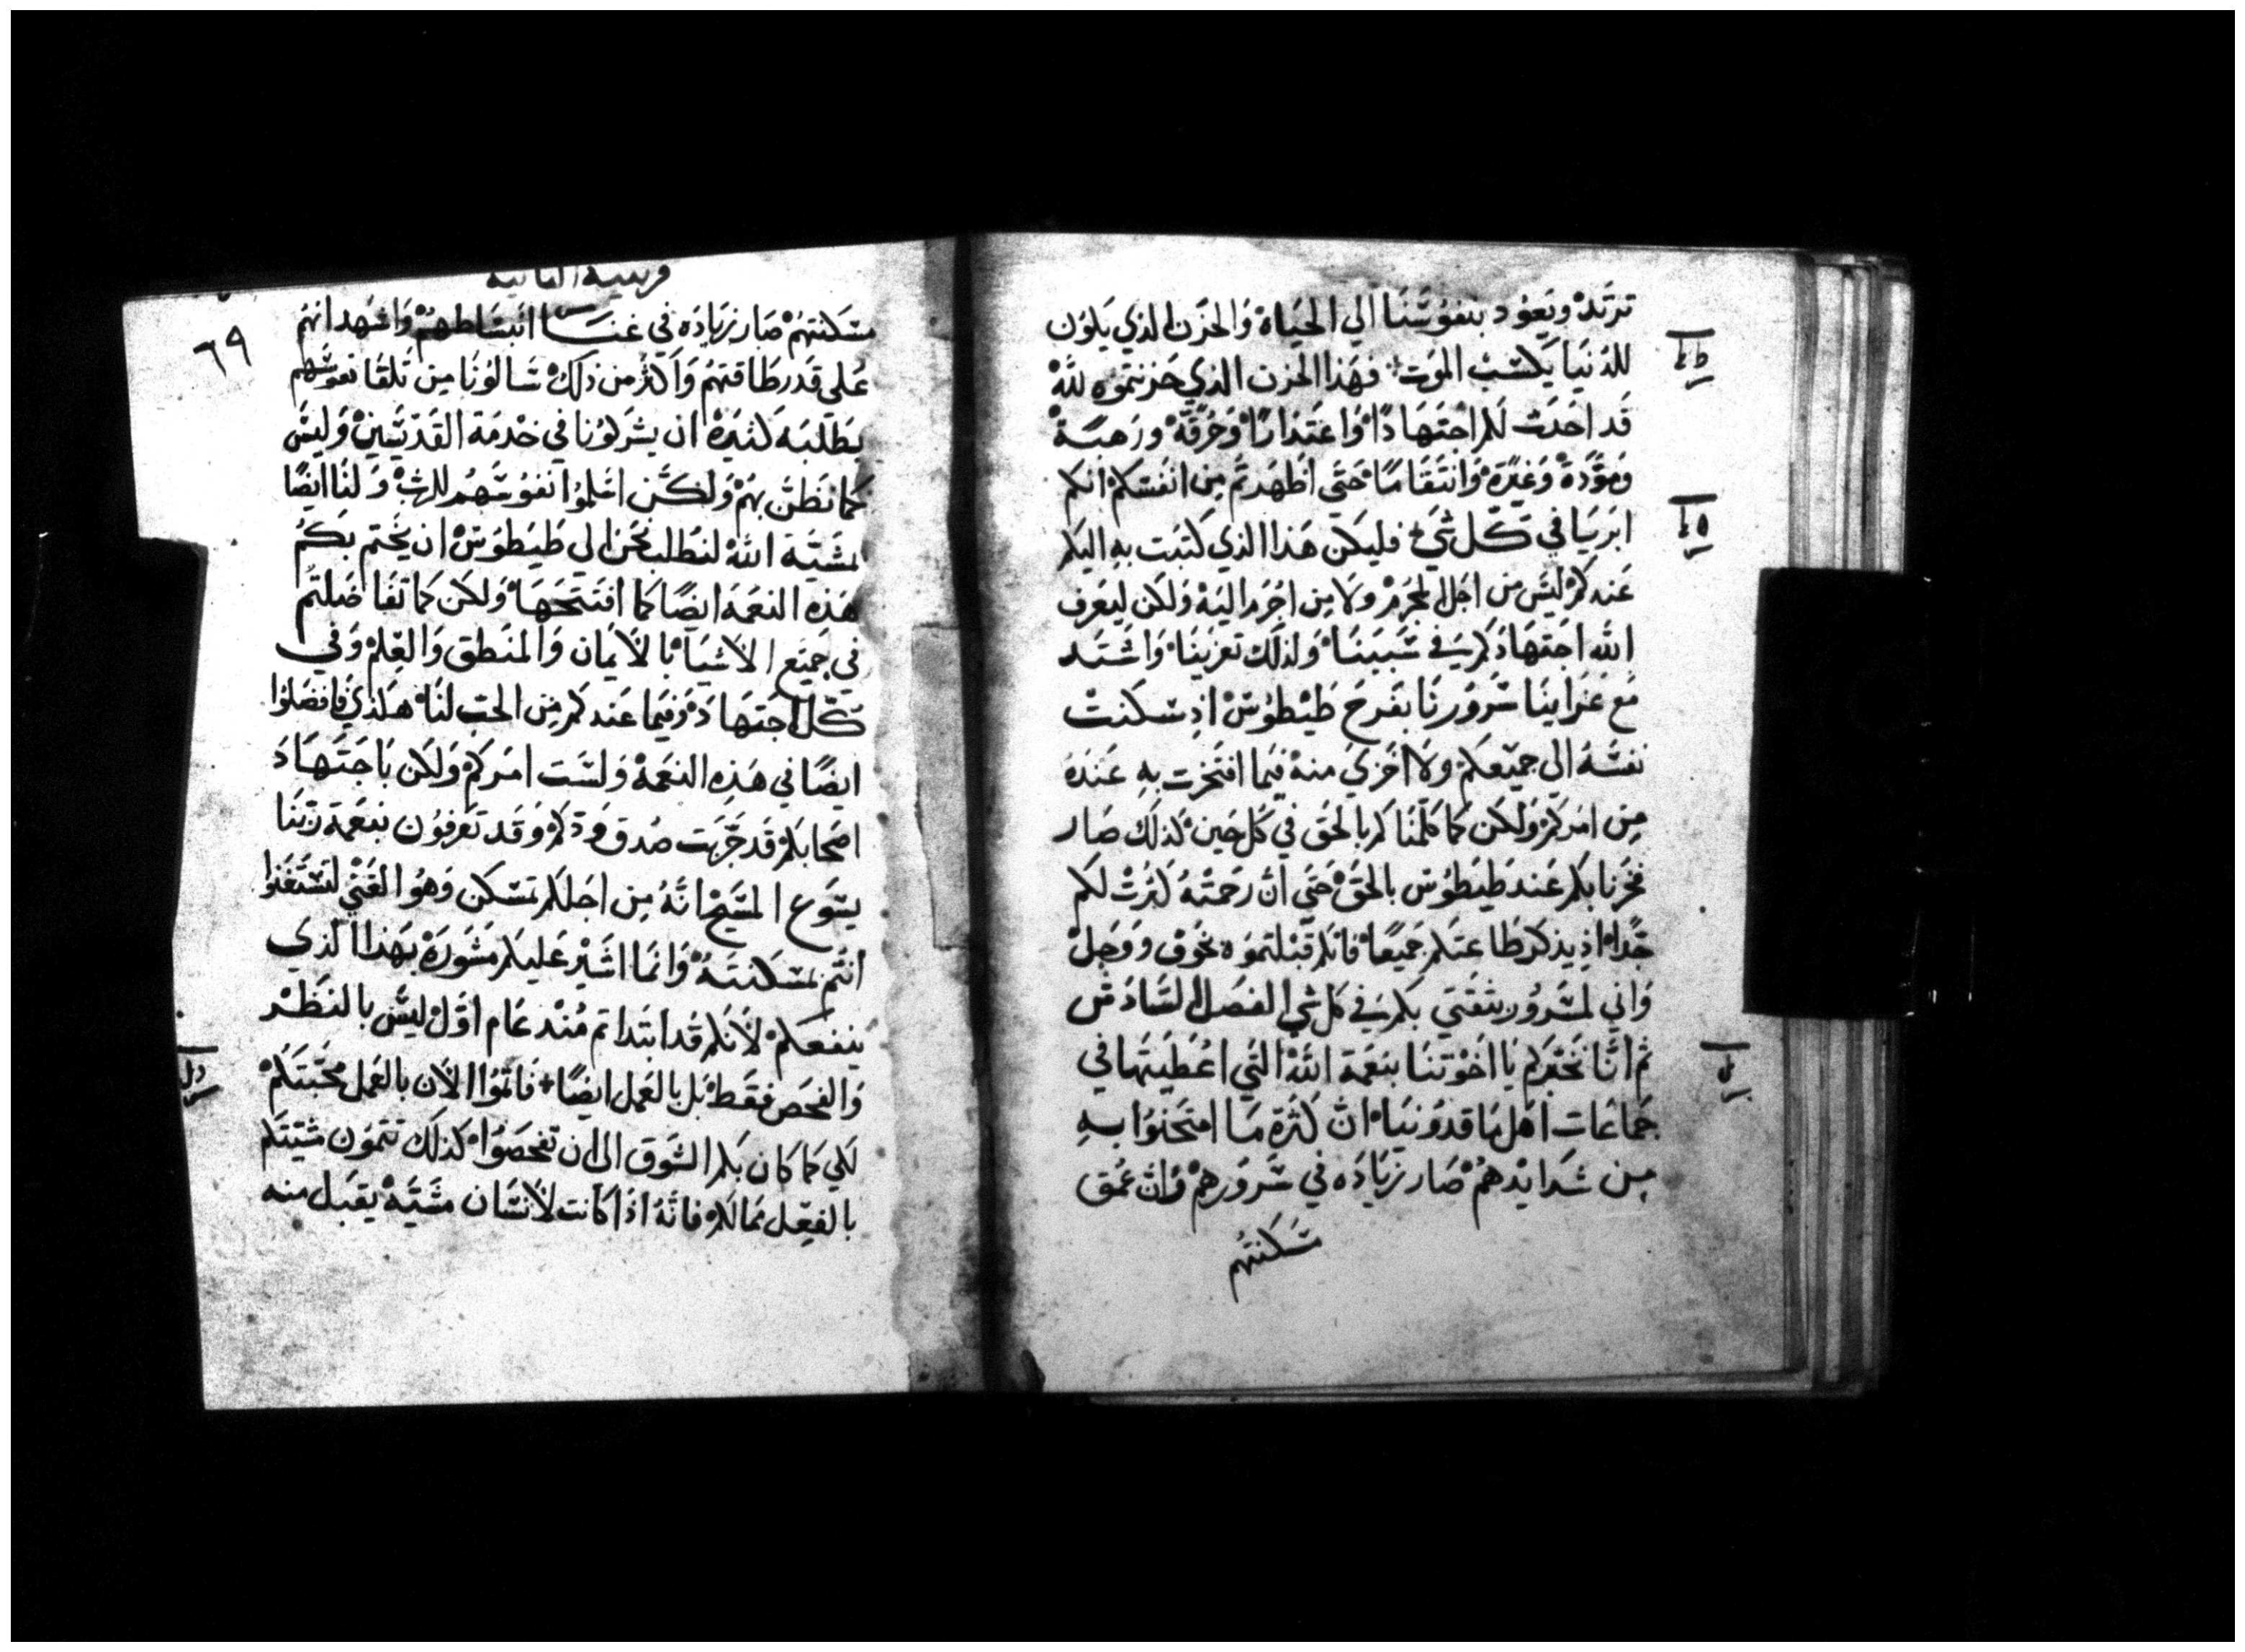 ترتد ويعود بنفوسنا الي الحياة والحزن الذي يكون
للدنيا يكسب الموت فهذا الحزن الذي حزنتموه لله
قد احدث لكم اجتهادًا واعتذارًا وحرقة ورهبة
ومودة وغيرة وانتقامًا حتي اظهرتم من انفسكم انكم
ابريا في كل شي فليكن هذا الذي كتبت به اليكم
عندكم ليس من اجل المجرم ولا من اجرم اليه ولكن ليعرف
الله اجتهادكم في سببنا ولذلك تعزينا واشتد
مع عزاينا سرورنا بفرح طيطوس اذ سكنت
نفسه الي جميعكم ولا اخزي منه فيما افتخرت به عنده
من امركم ولكن كما كلمناكم بالحق في كل حين كذلك صار
فخرنا بكم عند طيطوس بالحق حتي ان رحمته كثرت لكم
جدا اذ يذكر طاعتكم جميعا فانكم قبلتموه بخوف ووجل
واني لمسرور بثقتي بكم في كل شي الفصل السادس
ثم اننا نخبركم يا اخوتنا بنعمة الله التي اعطيتها في
جماعات اهل ماقدونيا ان كثرة ما امتحنوا به
من شدايدهم صار زياده في سرورهم وان عمق
مسكنتهم
٦٩
مسكنتهم صار زياده في غنا انبساطهم واشهد انهم
علي قدر طاقتهم واكثر من ذلك سالونا من تلقا نفوسهم
بطلبه كثيرة ان يشركونا في خدمة القديسين وليس
كما نظن بهم ولكن اسلموا نفوسهم للرب ولنا ايضًا
بمشية الله لنطلب نحن الي طيطوس ان يختم بكم
هذه النعمة ايضًا كما افتتحها ولكن كما تفاضلتم
في جميع الاشيا بالايمان والمنطق والعلم وفي
كل اجتهاد وفيما عندكم من الحب لنا هكذي فافضلوا
ايضًا في هذه النعمة ولست امركم ولكن باجتهاد
اصحابكم قد جربت صدق ودكم وقد تعرفون بنعمة ربنا
يسوع المسيح انه من اجلكم تمسكن وهو الغني لتستغنوا
انتم بمسكنته وانما اشير عليكم مشورة بهذا الذي
ينفعكم لانكم قد ابتداتم منذ عام اول ليس بالنظر
والفحص فقط بل بالعمل ايضًا فاتموا الان بالعمل محبتكم
لكي كما كان بكم الشوق الى ان تفحصوا كذلك تتمون مشيتكم
بالفعل مما لكم فانه اذا كانت لانسان مشية يقبل منه